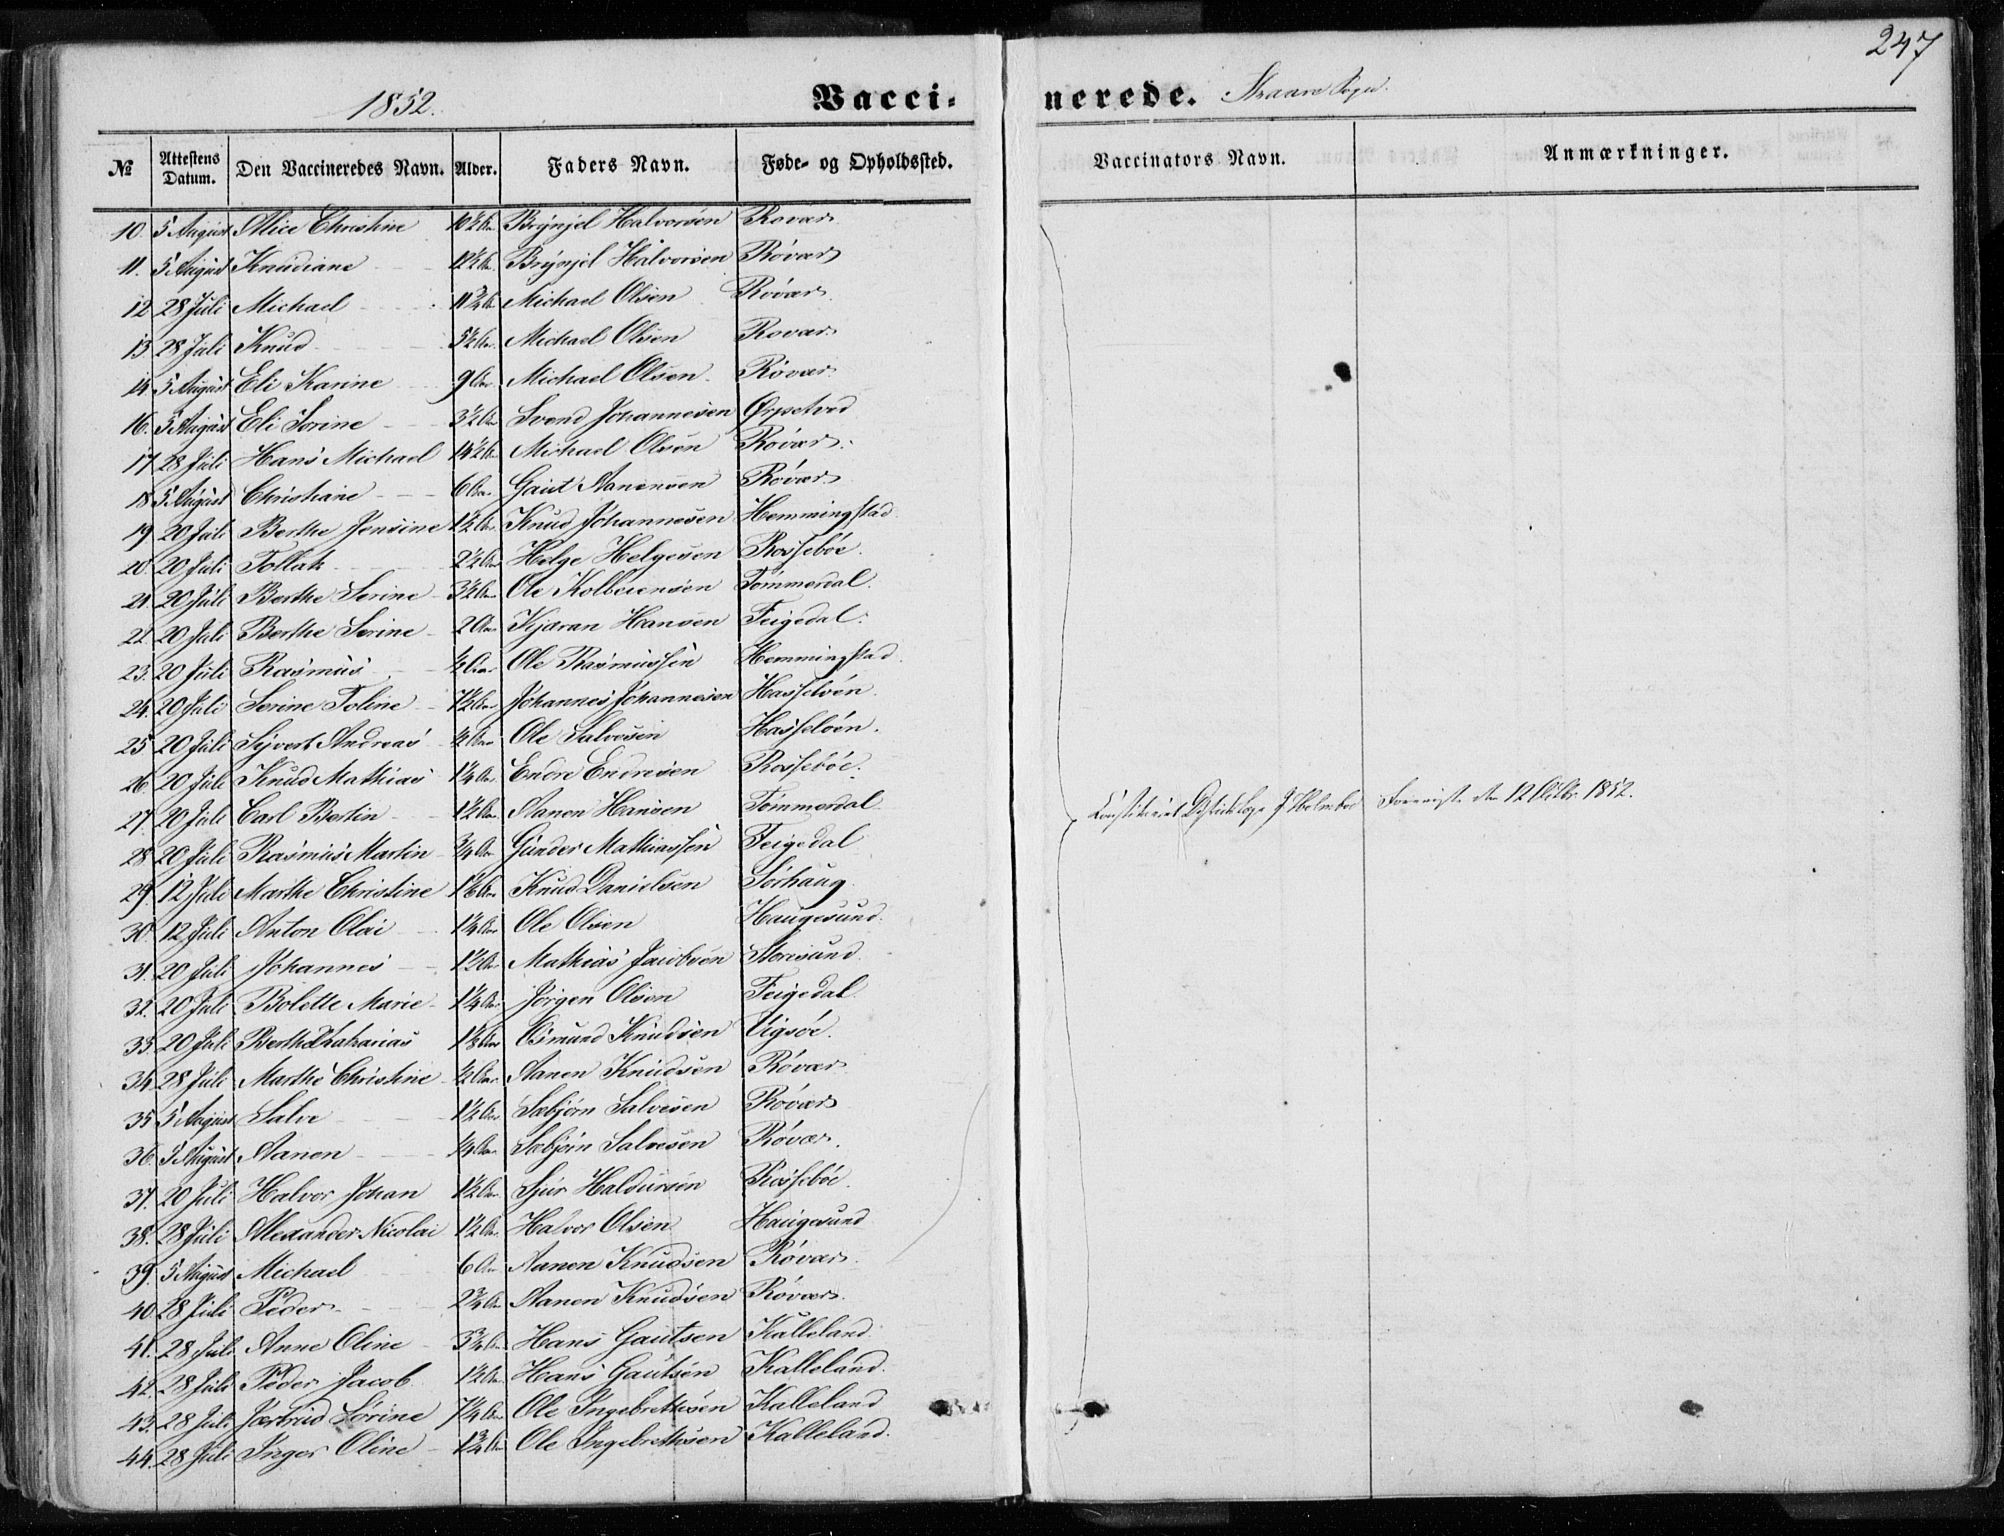 247
1852.
Vaccinerede. Skaare Sogn.
№ Attestens Datum. Den Vaccineredes Navn. Alder. Faders Navn. Føde- og Opholdssted. Vaccinators Navn. Anmærkninger.
10. 5 August Alice Christine 10½ Aar Brynjel Halvorsen Røvær
11. 5 August Knudiane 12½ Aar Brynjel Halvorsen Røvær
12 28 Juli Michael 11¾ Aar Michael Olsen Røvær
13 28 Juli Knud 5½ Aar Michael Olsen Røvær
14 5 August Eli Karine 9 Aar Michael Olsen Røvær
16. 5 August Eli Sørine 3½ Aar Svend Johannesen Ørpetved
17 28 Juli Hans Michael 14½ Aar Michael Olsen Røvær
18 5 August Christiane 6 Aar Gaut Aanensen Røvær
19 20 Juli Berthe Jensine 1½ Aar Knud Johannesen Hemmingstad
20. 20 Juli Tollak 2½ Aar Helge Helgesen Rossebøe
21 20 Juli Berthe Serine 3½ Aar Ole Kolbeiensen Tømmerdal
22 20 Juli Berthe Serine 2 Aar Kjæran Hansen Feigedal
23. 20 Juli Rasmus ½ Aar Ole Rasmussen Hemmingstad
24. 20 Juli Serine Toline 7½ Aar Johannes Johannesen Hasseløen
25 20 Juli Syvert Andreas ½ Aar Ole Salvesen Hasseløen
26. 20 Juli Knud Mathias 1¼ Aar Endre Endresen Rossebøe
27. 20 Juli Carl Bertin 1½ Aar Aanen Hansen Tømmerdal Constitueret Districtslæge J. Holmboe Foreviist den 12 Octbr. 1852.
28. 20 Juli Rasmus Martin ¾ Aar Gunder Mathiassen Feigedal
29. 12 Juli Marthe Christine Aar Knud Danielsen Sørhaug
30. 12 Juli Anton Olai 1¼ Aar Ole Olsen Haugesund
31. 20 Juli Johannes 1½ Aar Mathias Jacobsen Storesund
32. 20 Juli Bolette Marie 1¼ Aar Jørgen Olsen Feigedal
33. 20 Juli Berthe Zakarias Aar Osmund Knudsen Vigsøe
34. 28 Juli Marthe Christine ½ Aar Aanen Knudsen Røvær
35 5 August Salve 1½ Aar Sæbjørn Salvesen Røvær
36. 5 August Aanen ¼ Aar Sæbjørn Salvesen Røvær
37. 20 Juli Halvor Johan 1½ Aar Sjur Haldorsen Rossebøe
38. 28 Juli Alexander Nicolai 1½ Aar Halvor Olsen Haugesund
39. 5 August Michael 6 Aar Aanen Knudsen Røvær
40. 28 Juli Peder 2¾ Aar Aanen Knudsen Røvær
41. 28 Juli Anne Oline 3¾ Aar Hans Gautsen Kalleland
42. 28 Juli Peder Jacob 1½ Aar Hans Gautsen Kalleland
43. 28 Juli Jærtrud Sørine 7¼ Aar Ole Ingebrethsen Kalleland
44. 28 Juli Inger Oline 1¾ Aar Ole Ingebrethsen Kalleland